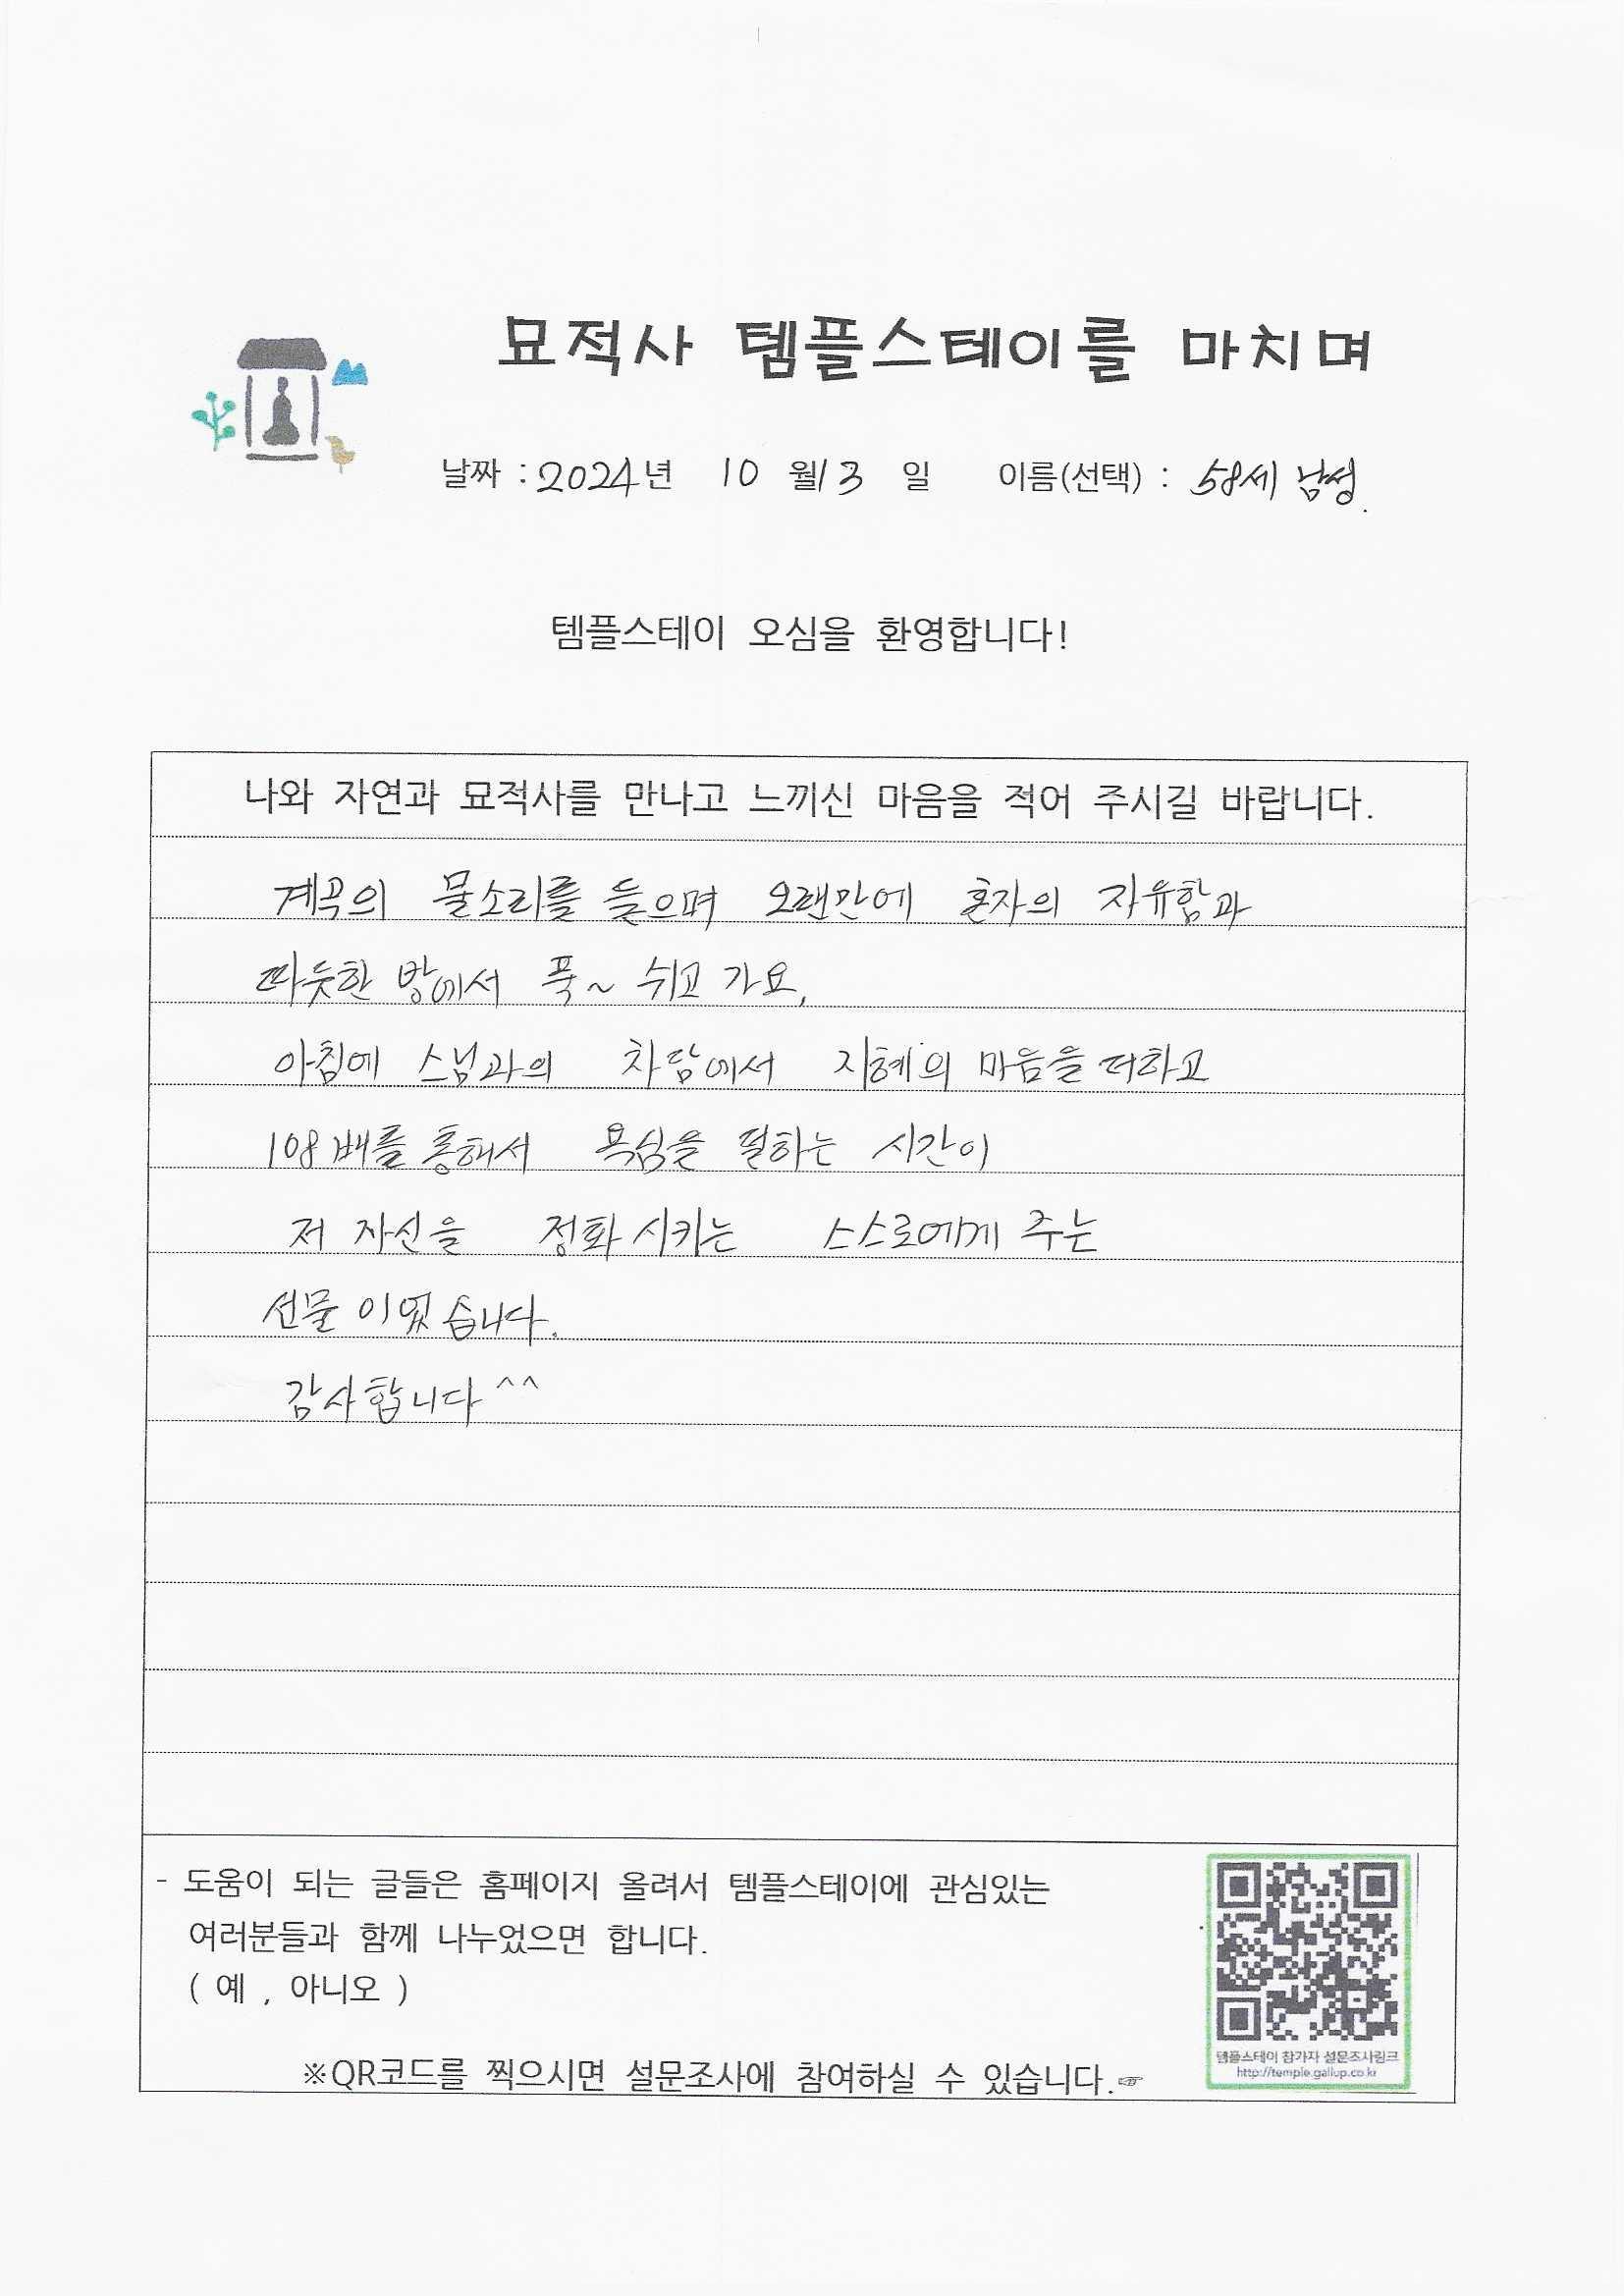 묘적사 템플스테이를 마치며
날짜 : 2024년 10 월13 일 이름(선택) : 58세 남성.
템플스테이 오심을 환영합니다!
나와 자연과 묘적사를 만나고 느끼신 마음을 적어 주시길 바랍니다.
계곡의 물소리를 들으며 오랜만에 혼자의 자유함과
따듯한 방에서 푹~ 쉬고 가요,
아침에 스님과의 차담에서 지혜의 마음을 더하고
108배를 통해서 욕심을 덜하는 시간이
저 자신을 정화시키는 스스로에게 주는
선물이였습니다.
감사합니다^^
- 도움이 되는 글들은 홈페이지 올려서 템플스테이에 관심있는
여러분들과 함께 나누었으면 합니다.
( 예 , 아니오 )
템플스테이 참가자 설문조사링크
http://temple.gallup.co.kr
※QR코드를 찍으시면 설문조사에 참여하실 수 있습니다.☞